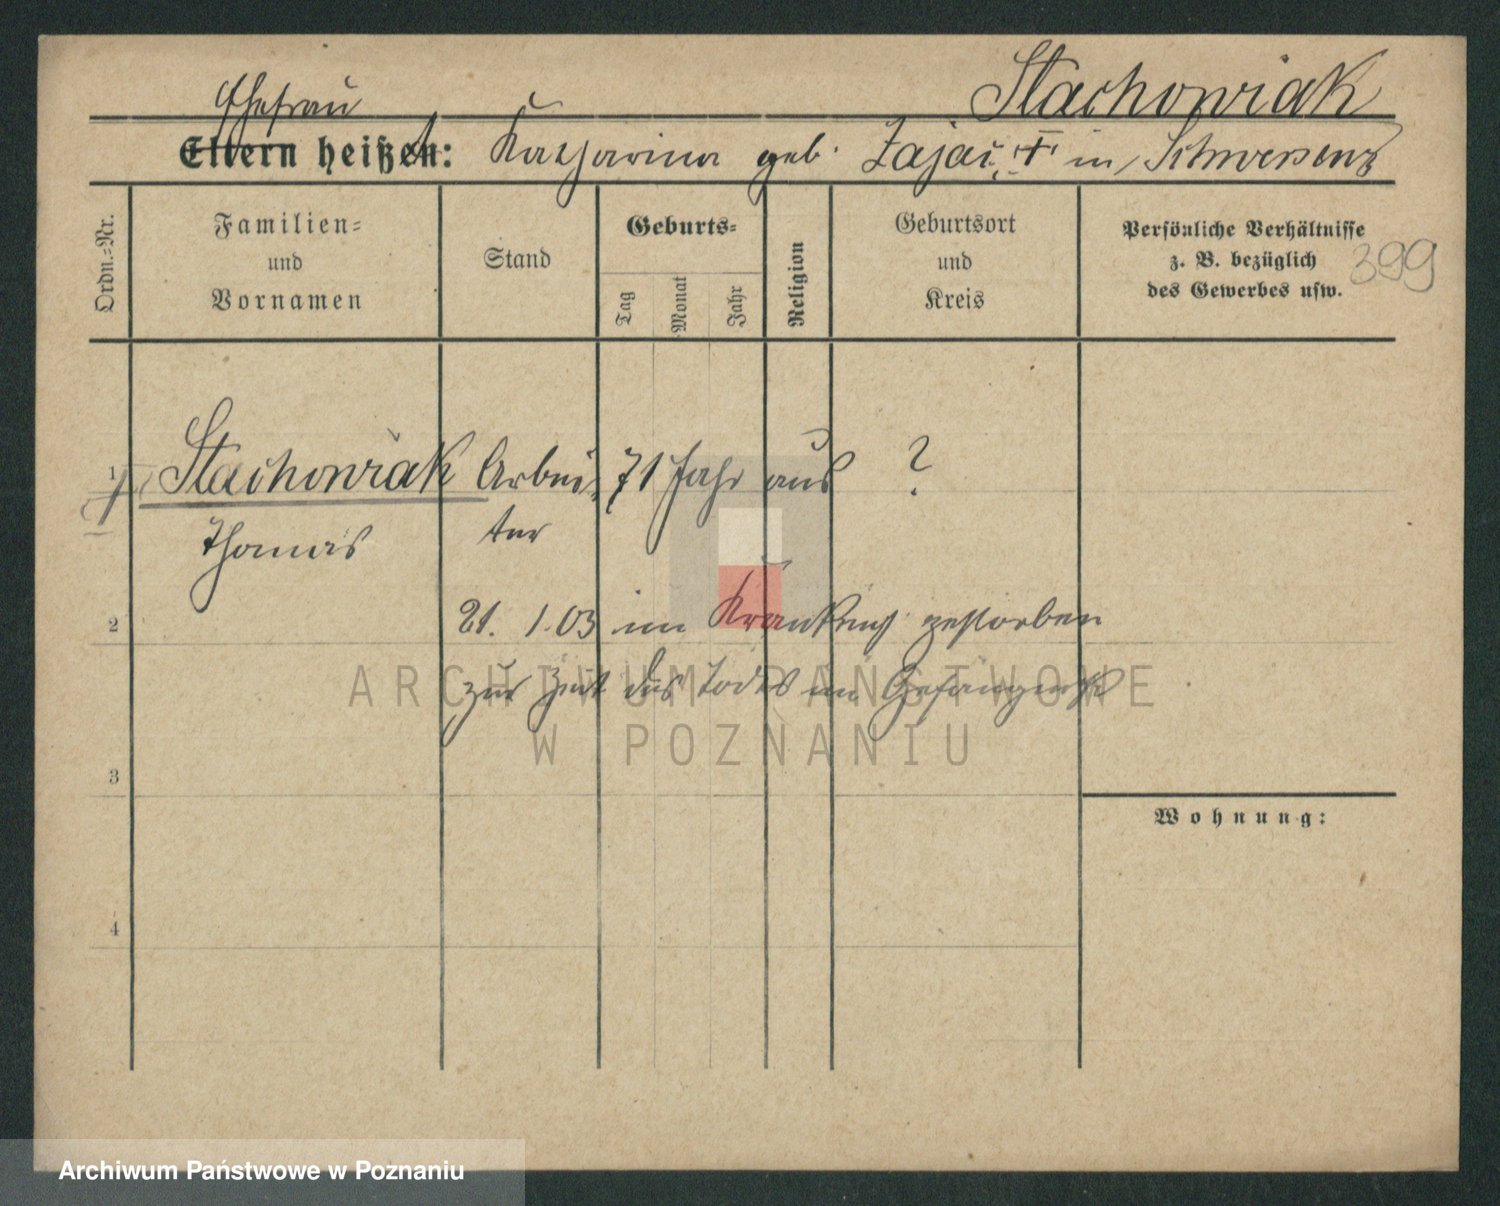 Stachowiak
Ehefrau
Eltern heißt: Katharina geb. Zajac, + in Schwersenz
Ordn.-Nr.
Familien-
und
Vornamen
Stand
Geburts-
Tag
Monat
Jahr
Religion
Geburtsort
und
Kreis
Persönliche Verhältnisse
z. B. bezüglich
des Gewerbes usw.
399
1 Stachowiak Arbei- 71 Jahr aus ?
Thomas ter
2 21. 1. 03 im gestorben
zur Zeit des Todes im Gefängniß
3
Wohnung:
4
ARCHIWUM PAŃSTWOWE
W POZNANIU
Archiwum Państwowe w Poznaniu